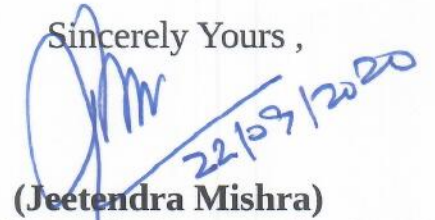 Sincerely Yours ,
22/09/2020
(Jeetendra Mishra)